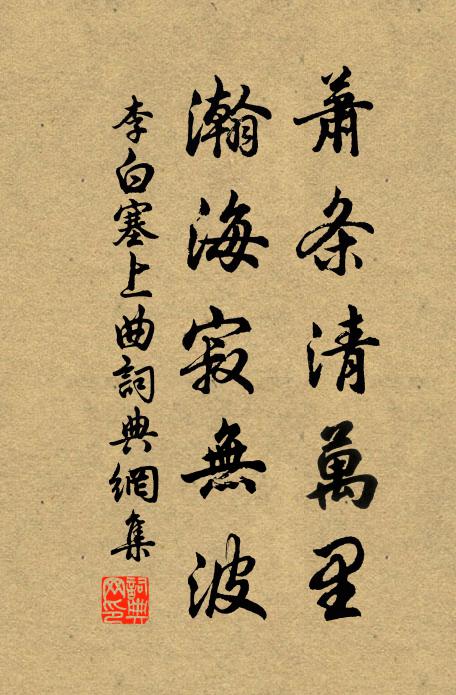 蕭条清萬里
瀚海寂無波
李白塞上曲詞典網集
詞典
网印